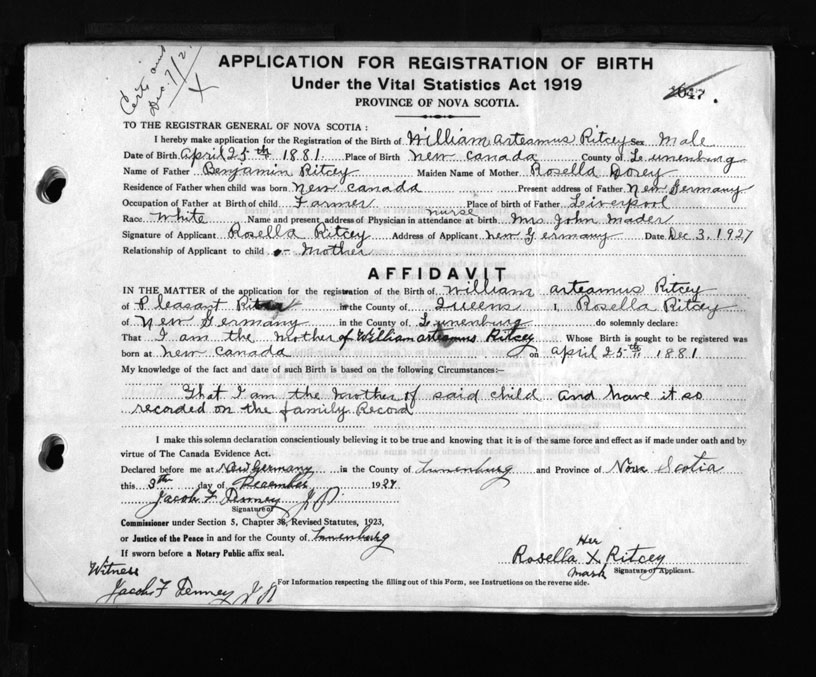 APPLICATION FOR REGISTRATION OF BIRTH
Under the Vital Statistics Act 1919
PROVINCE OF NOVA SCOTIA.
Dec. 7/2
X
1047.
TO THE REGISTRAR GENERAL OF NOVA SCOTIA :
I hereby make application for the Registration of the Birth of William arteamus Ritcey Sex Male
Date of Birth April 25th 1881. Place of Birth New Canada County of Lunenburg
Name of Father Benjamin Ritcey Maiden Name of Mother Rosella Dorey
Residence of Father when child was born New Canada Present address of Father New Germany
Occupation of Father at Birth of child Farmer Place of birth of Father Leiverpool
Race White Name and present address of Physician in attendance at birth nurse Mrs. John Mader
Signature of Applicant Rosella Ritcey Address of Applicant New Germany Date Dec 3, 1927
Relationship of Applicant to child Mother
AFFIDAVIT
IN THE MATTER of the application for the registration of the Birth of William arteamus Ritcey
of Pleasant in the County of Queens I, Rosella Ritcey
of New Germany in the County of Lunenburg do solemnly declare:
That I am the Mother of William arteamus Ritcey Whose Birth is sought to be registered was
born at New Canada on april 25th 1881
My knowledge of the fact and date of such Birth is based on the following Circumstances:—
That I am the Mother of said child and have it so
recorded on the family Record
I make this solemn declaration conscientiously believing it to be true and knowing that it is of the same force and effect as if made under oath and by
virtue of The Canada Evidence Act.
Declared before me at New Germany in the County of Lunenburg and Province of Nova Scotia
this 3th day of December 1927
Jacob F Penney J P.
Signature of
Commissioner under Section 5, Chapter 38, Revised Statutes, 1923,
or Justice of the Peace in and for the County of Lunenburg
If sworn before a Notary Public affix seal.
Her
Rosella X Ritcey
Mark Signature of Applicant.
Witness
Jacob F Penney J P
For Information respecting the filling out of this Form, see Instructions on the reverse side.